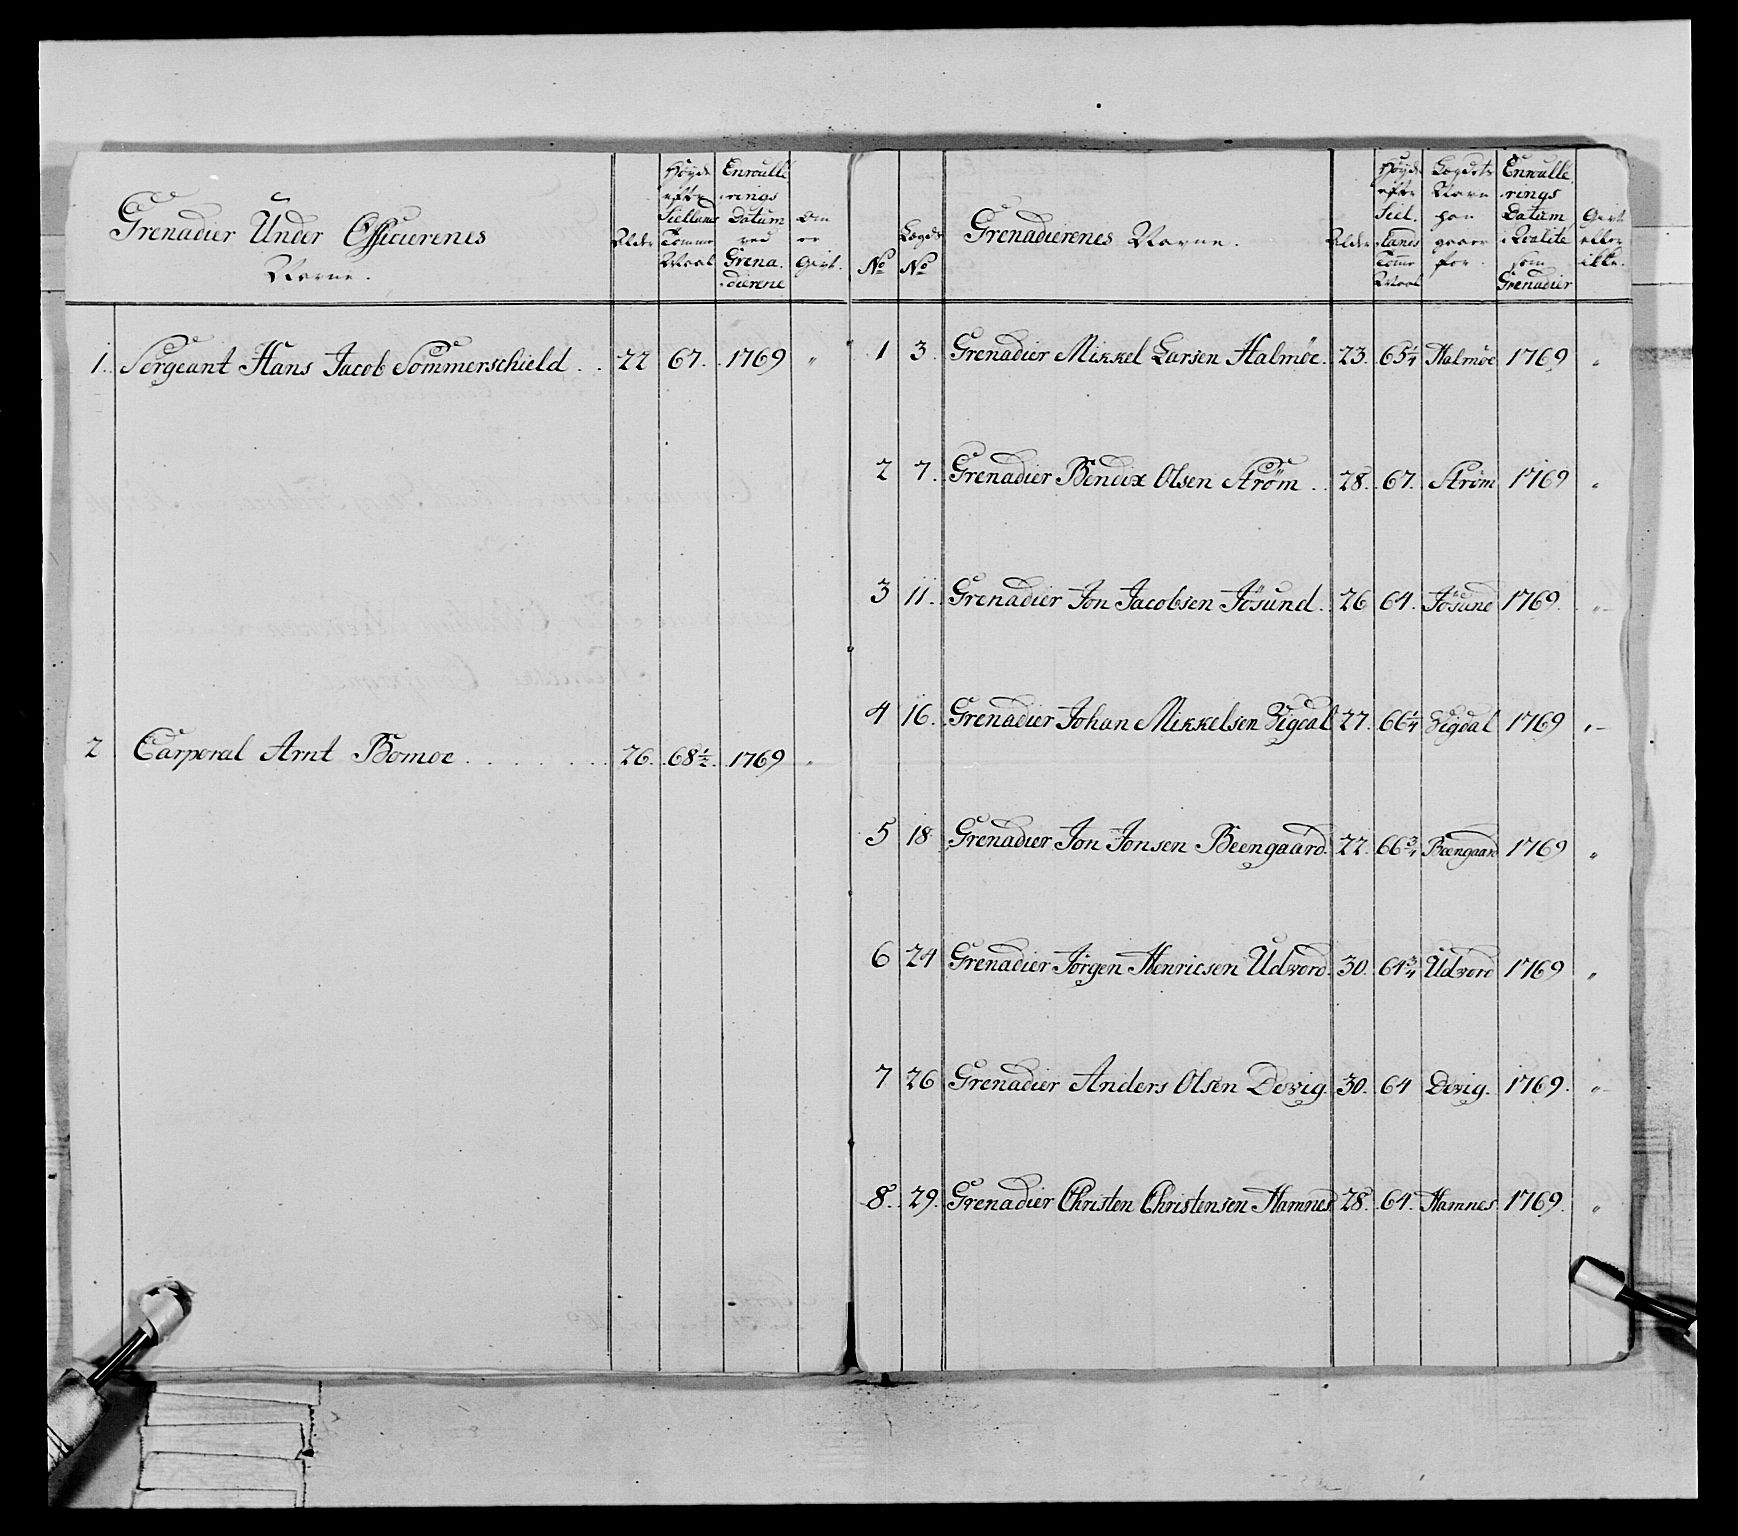 Grenadier Under Officierenes
Navne.
Alder
Høyde
efter
Siellands
Tomme
Maal
Enroulle
rings
Datum
ved
Grena
dierene
Om
er
Givt.
1. Sergeant Hans Jacob Sommerschield . . 22 67. 1769 "
2 Carporal Arnt Bomoe . . . . . . . 26. 68½. 1769 "
No
Lægds
No
Grenadierenes Navne.
Alder
Høyde
efter
Siel
lands
Tomme
Maal
Lægdets
Navn
han
staaer
for.
Enroulle
rings
Datum
i Rolle
som
Grenadier
Givt
eller
ikke.
1 3. Grenadier Mikkel Larsen Halmöe. 23. 65¼ Halmöe 1769 "
2 7. Grenadier Bendix Olsen Strøm . . 28. 67. Strøm 1769 "
3 11. Grenadier Jon Jacobsen Jösund. 26 64. Jösund 1769. "
4 16. Grenadier Johan Mikkelsen Vigdal 27. 66¼ Vigdal 1769 "
5 18 Grenadier Jon Jonsen Beengaard. 22. 66¾ Beengaard 1769 "
6 24 Grenadier Jörgen Henricsen Udvord. 30. 64¾ Udvord 1769 "
7 26 Grenadier Anders Olsen Devig. 30. 64 Devig. 1769. "
8. 29. Grenadier Christen Christensen Hamnes 28. 64. Hamnes. 1769. "